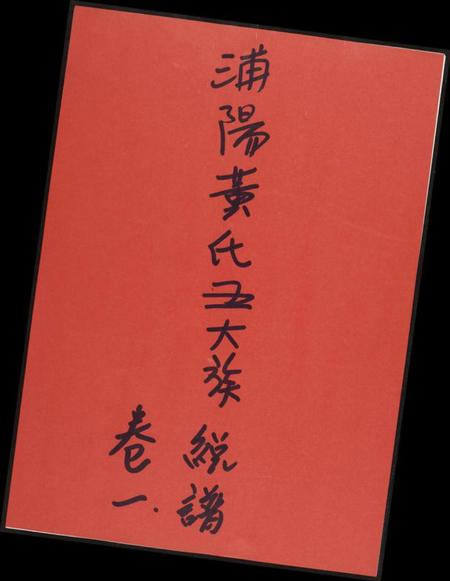 浦陽黃氏五大族統譜
卷一.